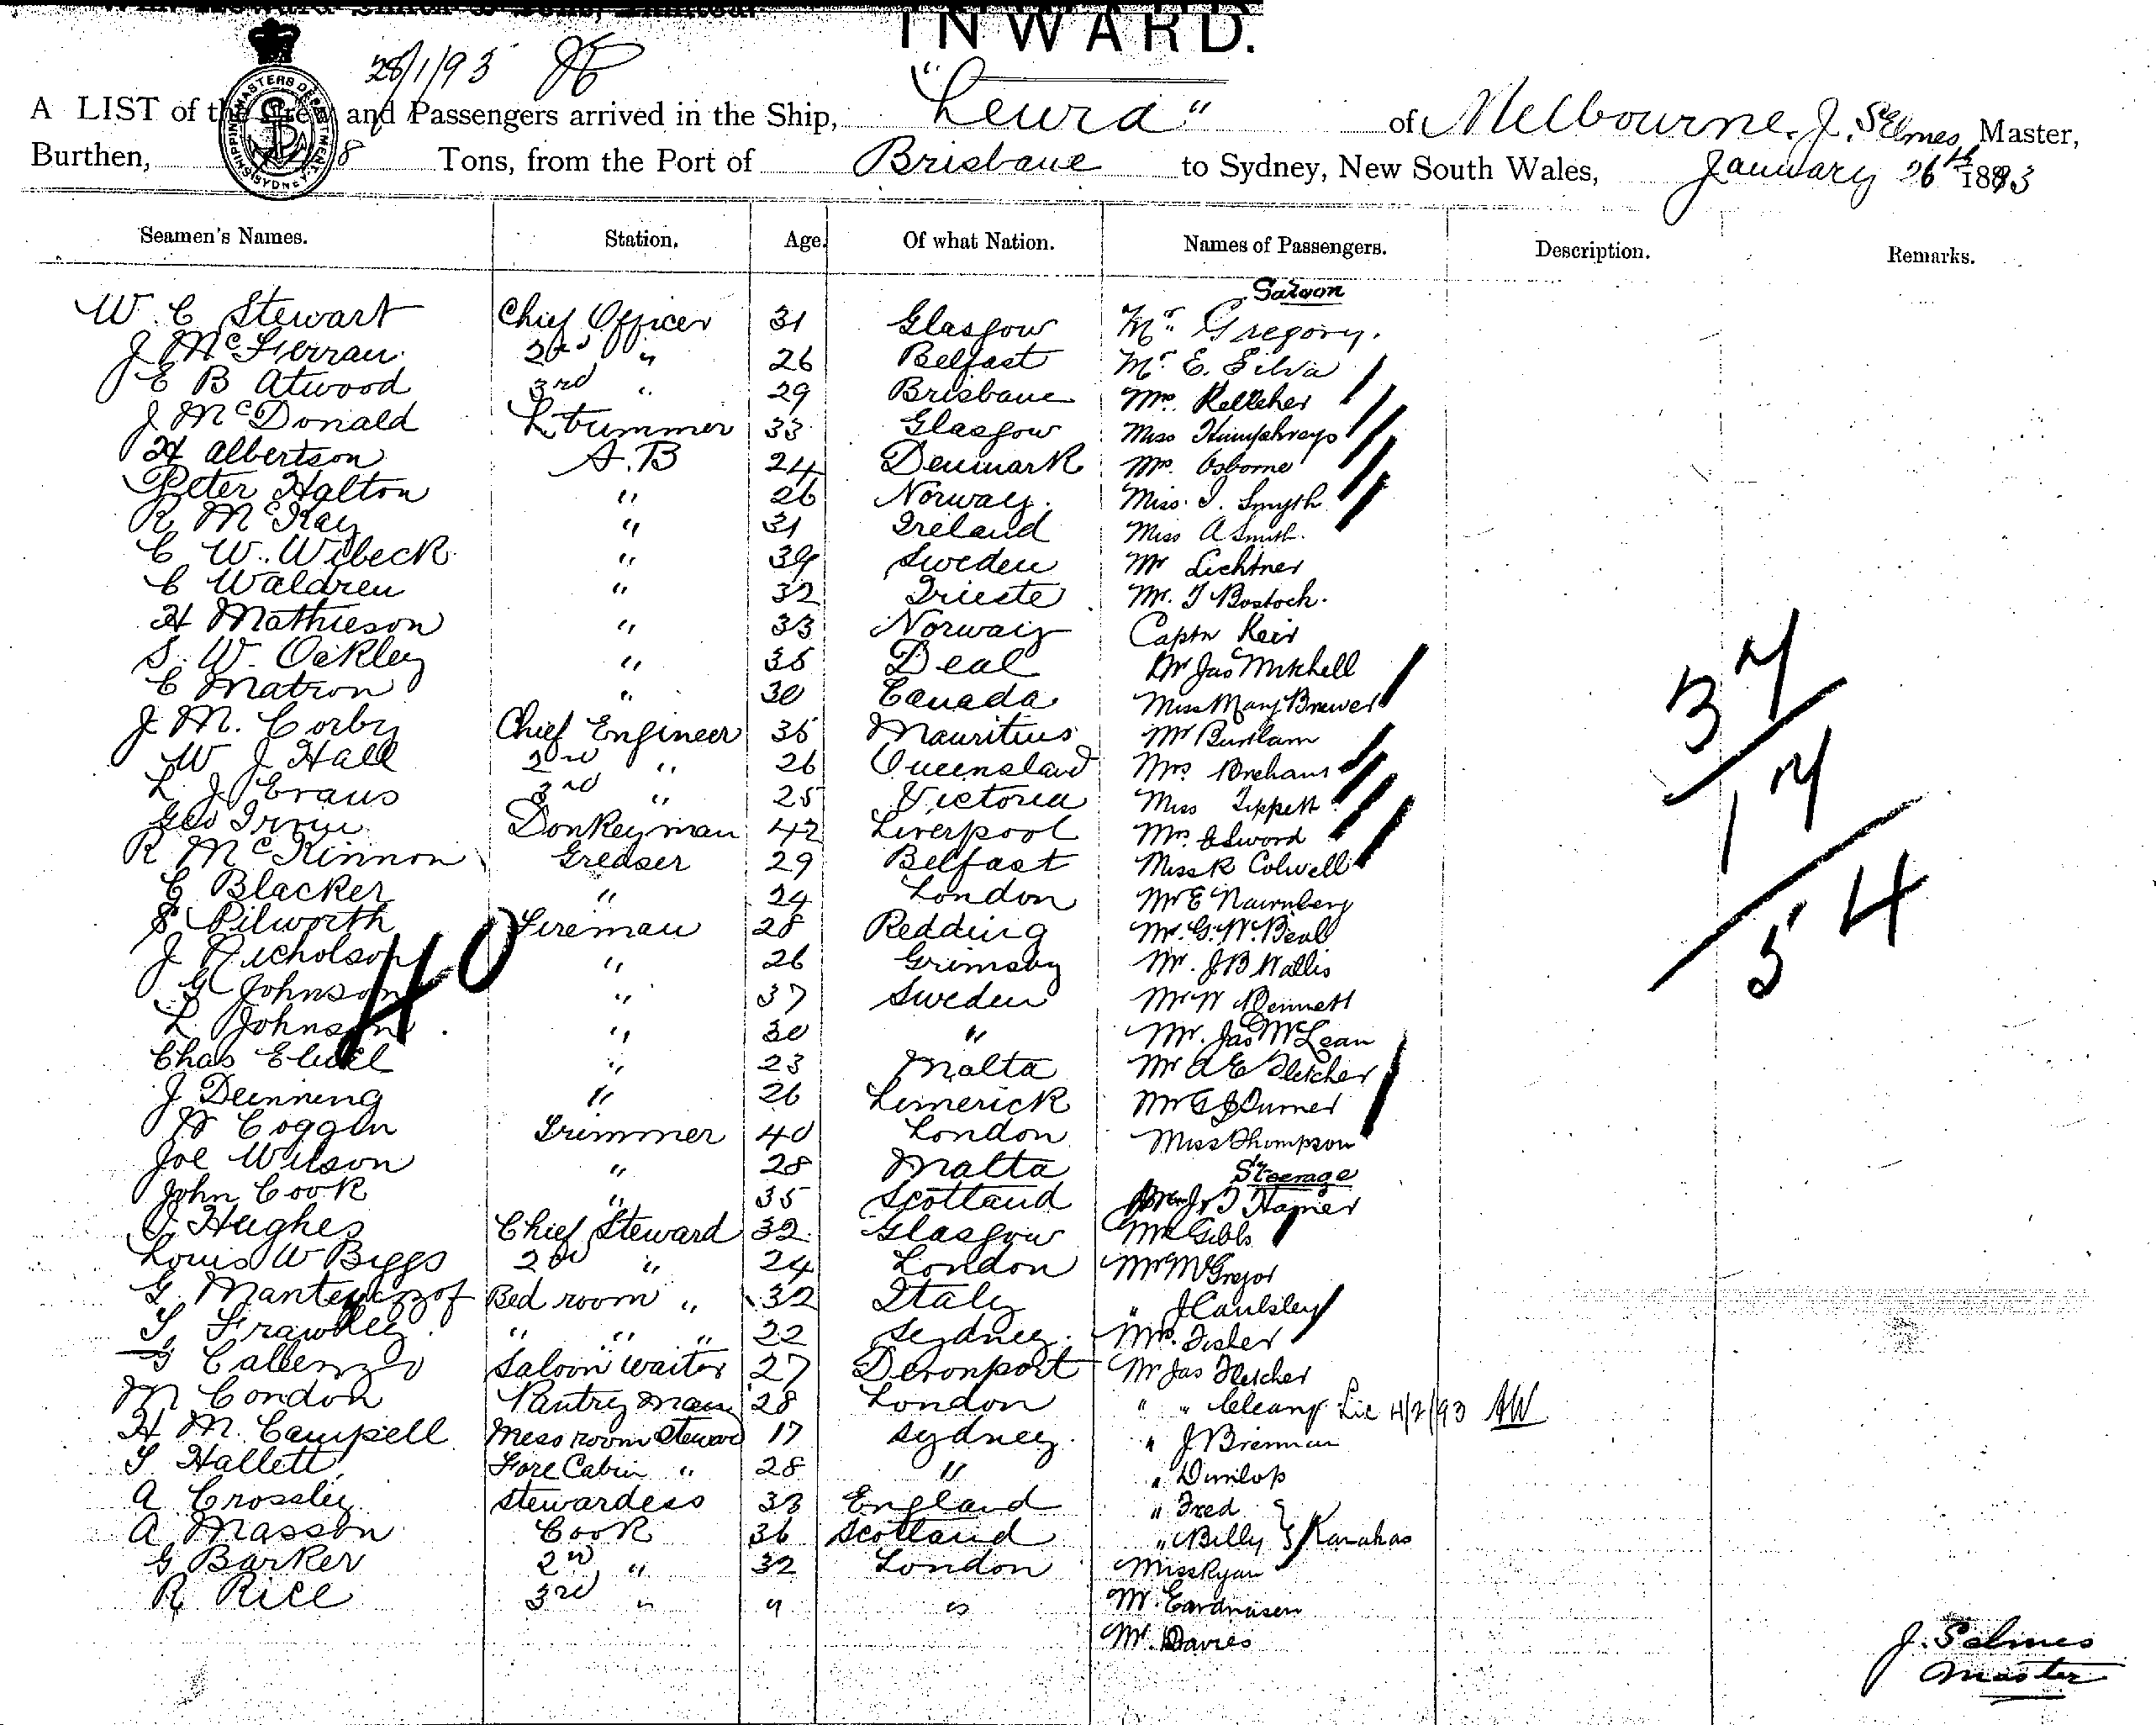 INWARD.
28/1/93
A LIST of the Crew and Passengers arrived in the Ship, "Leura" of Melbourne, J. Selmes Master,
Burthen, Tons, from the Port of Brisbane to Sydney, New South Wales, January 26th 1893
SHIPPING MASTERS DEPARTMENT SYDNEY
Seamen's Names. Station. Age. Of what Nation. Names of Passengers. Description. Remarks.
Saloon
W. C Stewart Chief Officer 31 Glasgow Mr. Gregory.
J McFerran 2nd " 26 Belfast Mr. E. Silva
E B Atwood 3rd " 29 Brisbane Mrs. Kelleher
J McDonald Ltrimmer 33 Glasgow Miss Humphreys
H Albertson A.B 24 Denmark Mrs. Osborne
Peter Halton " 26 Norway. Miss. I. Smyth
R McKay " 31 Ireland Miss A Smith.
C W. Wibeck " 39 Sweden Mr Lichtner
C Waldren " 32 Trieste Mr. T Bostock.
H Mathieson " 33 Norway Captn Keir
S. W. Oakley " 35 Deal Dr Jas Mitchell
C Matron " 30 Canada Miss Mary Brewer
J. M. Corby Chief Engineer 35 Mauritius Mr
W J Hall 2nd " 26 Queensland Mrs
L J Evans 3rd " 25 Victoria Miss Tippett
Geo Irvin Donkeyman 42 Liverpool Mrs. E Sword
R McKinnon Greaser 29 Belfast Miss R Colwell
C Blacker " 24 London Mr E Naurnberg
S Pilworth Fireman 28 Redding Mr. G. W. Beal
J Nicholson " 26 Grimsby Mr. J B Wallis
G Johnson " 37 Sweden Mr W Bennett
L Johnson " 30 " Mr. Jas McLean
Chas " 23 Malta Mr A E Fletcher
J Dunning " 26 Limerick Mr G J Turner
W Coggin Trimmer 40 London Miss Thompson
Joe Wilson " 28 Malta
Steerage
John Cook " 35 Scotland J T Hapier
J. Hughes Chief Steward 32 Glasgow Mr Gibbs
Louis W Biggs 2nd " 24 London Mr McGregor
G. Bed room " 32 Italy " J Caulsley
S. Frawley " " " 22 Sydney. Mrs. Fisher
G Saloon Waiter 27 Devonport Mr Jas Fletcher
M Condon Pantry Man 28 London " " Lic 4/2/93 AW
H M. Campell Mess room Steward 17 Sydney. " J Brennan
S Hallett Fore Cabin " 28 " " Dunlop
A Crossley Stewardess 33 England " Fred
A Masson Cook 36 Scotland " Billy } Kanakas
G Barker 2nd " 32 London Miss Ryan
R Rice 3rd " " " Mr.
Mr. Davies
40
37
17
54
J. Selmes
Master